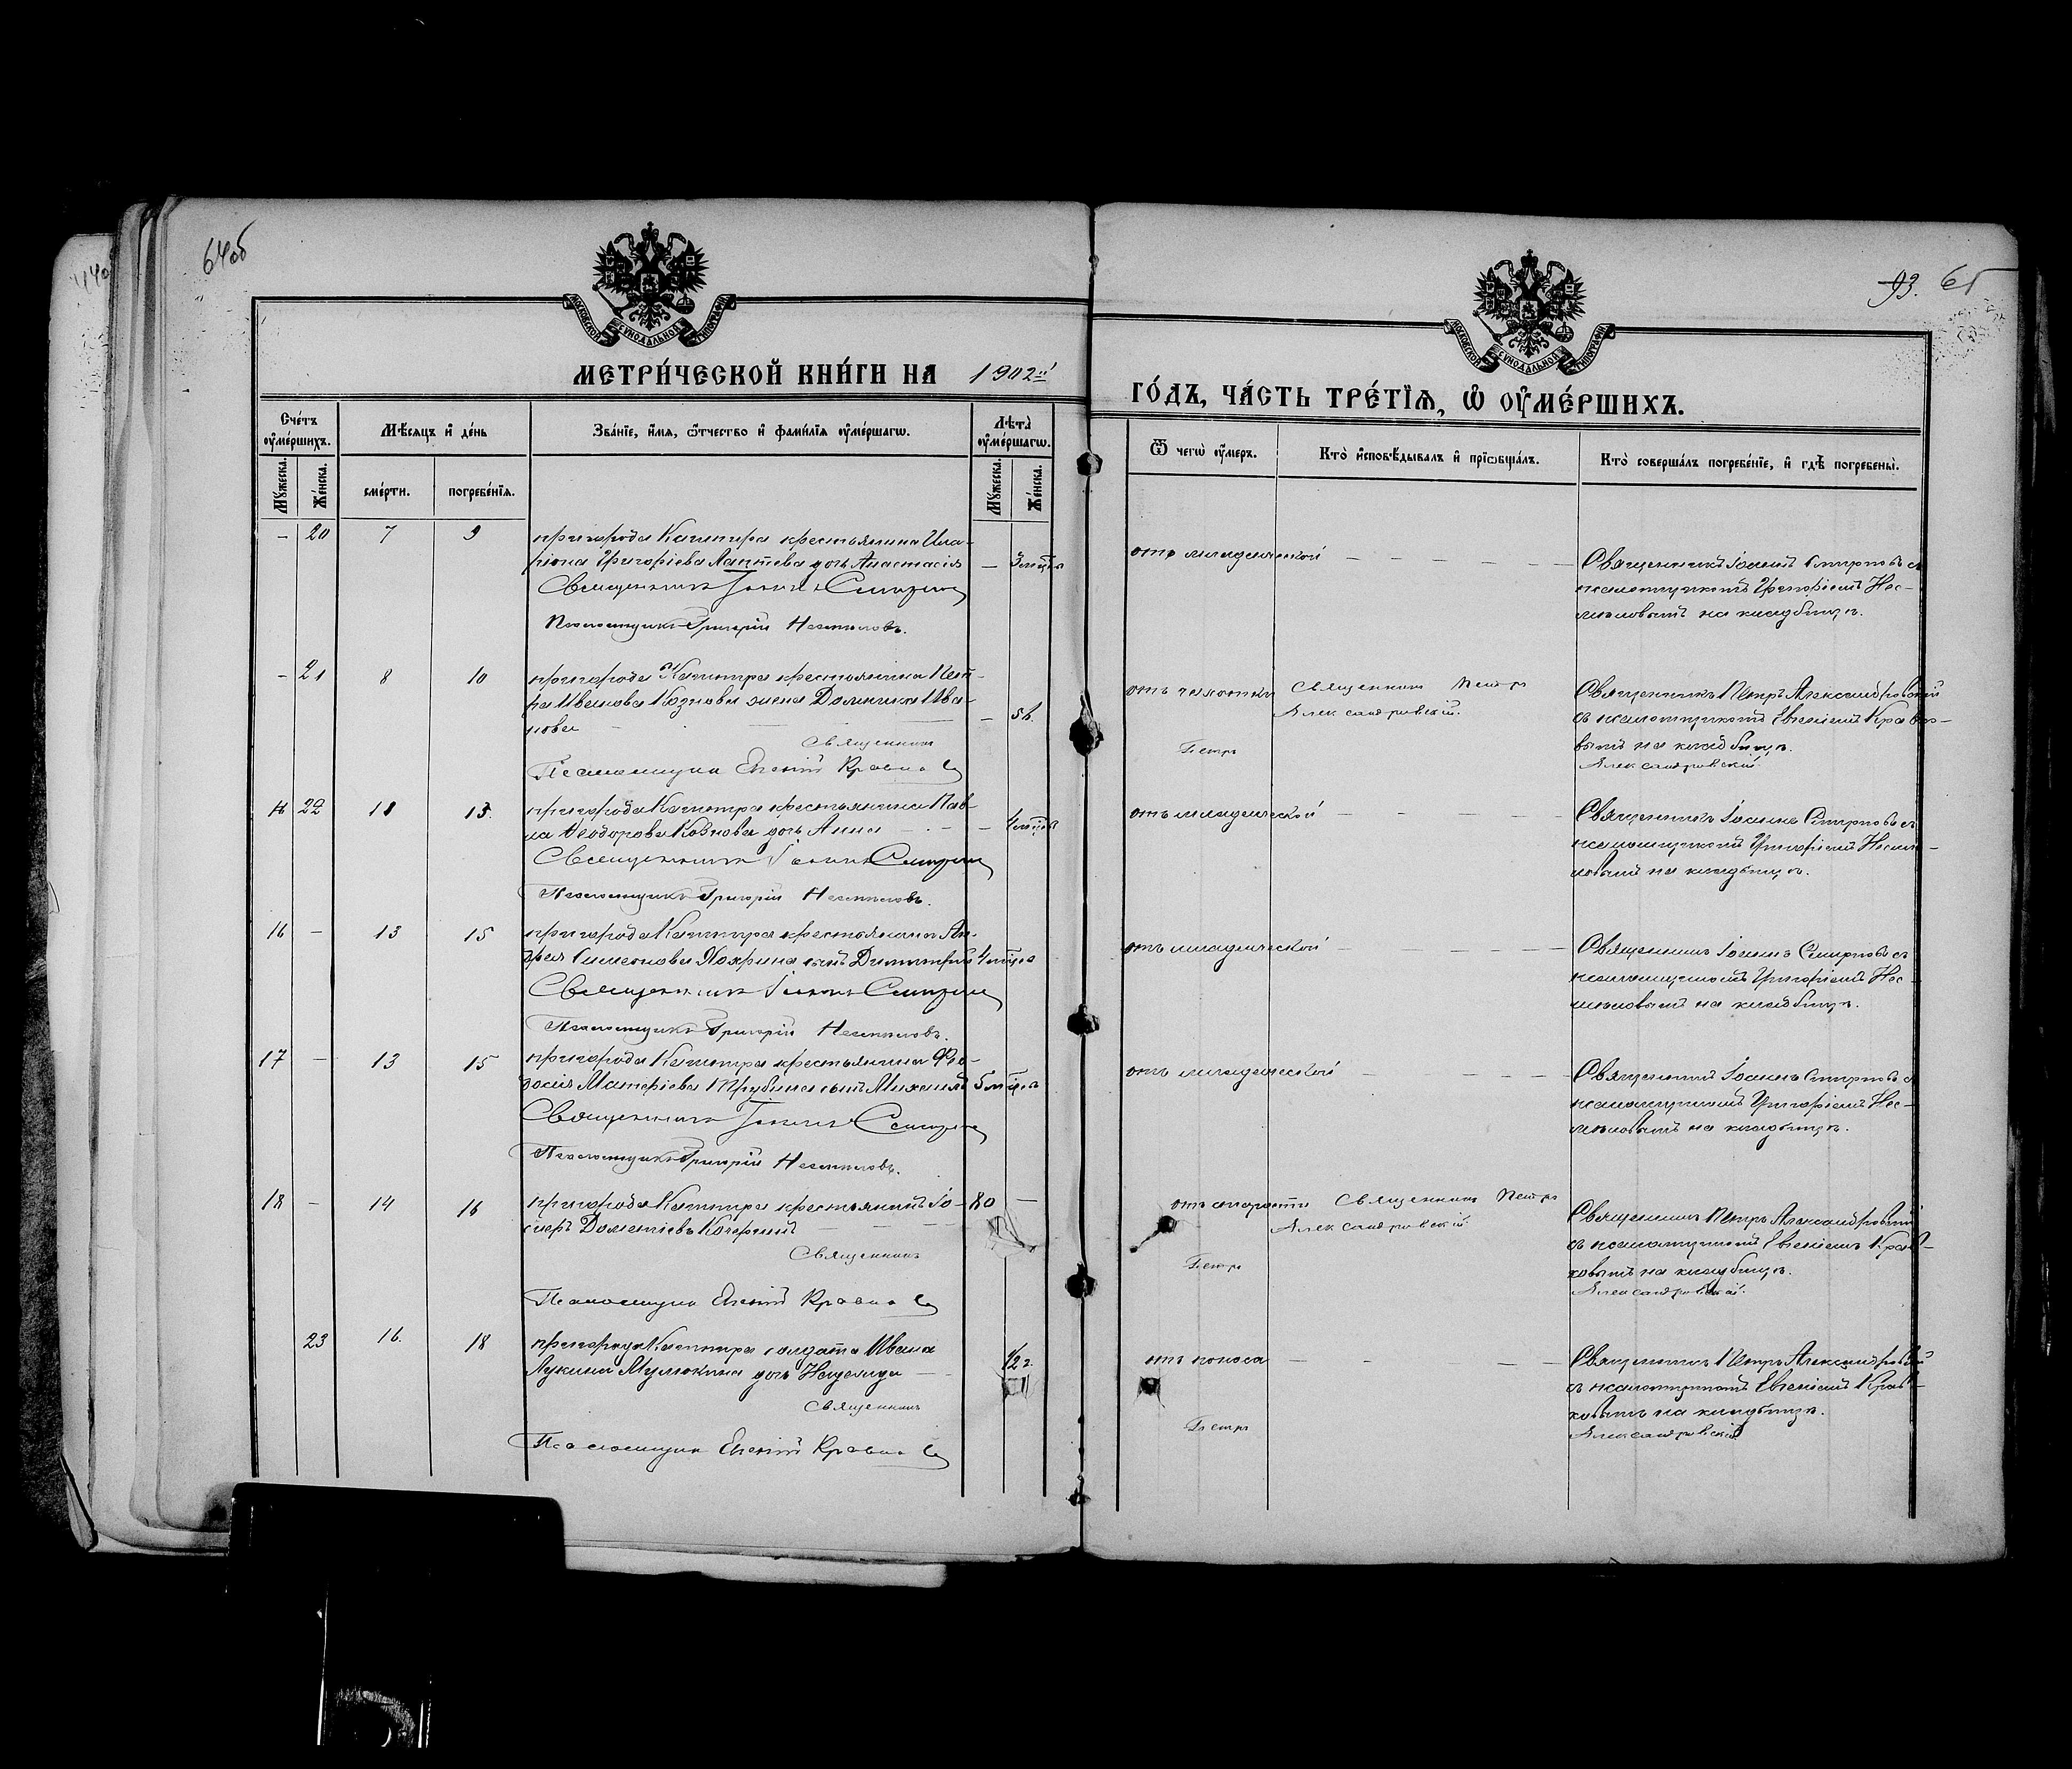 64об
93. 65
МОСКОВСКОЙ СѴНОДАЛЬНОЙ ТИПОГРАФІИ
МОСКОВСКОЙ СѴНОДАЛЬНОЙ ТИПОГРАФІИ
МЕТРИ́ЧЕСКОЙ КНИ́ГИ НА 1902й
ГО́ДЪ, ЧА́СТЬ ТРЕ́ТІѦ, Ѡ҆ ОУ҆МЕ́РШИХЪ.
Сче́тъ оу҆ме́ршихъ.
Мѣ́сяцъ и҆ де́нь
Зва́нїе, и҆́мя, ѻ҆́тчество и҆ фами́лїя оу҆ме́ршагѡ.
Лѣ́та оу҆ме́ршагѡ.
Ѿ чегѡ̀ оу҆́меръ.
Кто̀ и҆сповѣ́дывалъ и҆ прїѡбща́лъ.
Кто̀ соверша́лъ погребе́нїе, и҆ гдѣ̀ погребены̀.
Мꙋ́жеска.
Же́нска.
сме́рти.
погребе́нїѧ.
Мꙋ́жеска.
Же́нска.
- 20 7 9 пригорода Кашпира крестьянина Ила-
ріона Григоріева Лаптева дочь Анастасія — 3 мѣсяца
Священникъ Іоаннъ Смирновъ
Псаломщикъ Григорій Несмѣловъ.
отъ младенческой — — — —
Священникъ Іоаннъ Смирновъ съ
псаломщикомъ Григоріемъ Нес-
мѣловымъ на кладбищѣ.
- 21 8 10 пригорода Кашпира крестьянина Пет-
ра Иванова Козлова жена Домника Ива-
нова — 56.
Священникъ Петръ Александровскій.
Псаломщикъ Евгеній Кравковъ
отъ чахотки Священникъ Петръ
Александровскій.
Священникъ Петръ Александровскій
съ псаломщикомъ Евгеніемъ Кравко-
вымъ на кладбищѣ.
22 11 13. пригорода Кашпира крестьянина Пав-
ла Ѳеодорова Козлова дочь Анна — 4 мѣсяца
Священникъ Іоаннъ Смирновъ
Псаломщикъ Григорій Несмѣловъ.
отъ младенческой — — — —
Священникъ Іоаннъ Смирновъ съ
псаломщикомъ Григоріемъ Несмѣ-
ловымъ на кладбищѣ.
16 — 13 15 пригорода Кашпира крестьянина Ан-
дрея Симеонова сынъ Димитрій 4 мѣсяца
Священникъ Іоаннъ Смирновъ
Псаломщикъ Григорій Несмѣловъ.
отъ младенческой — — — —
Священникъ Іоаннъ Смирновъ съ
псаломщикомъ Григоріемъ Нес-
мѣловымъ на кладбищѣ.
17 — 13 15 пригорода Кашпира крестьянина Ѳео-
досія Трубина сынъ Михаилъ 5 мѣсяцевъ
Священникъ Іоаннъ Смирновъ
Псаломщикъ Григорій Несмѣловъ.
отъ младенческой — — — —
Священникъ Іоаннъ Смирновъ съ
псаломщикомъ Григоріемъ Нес-
мѣловымъ на кладбищѣ.
18 — 14 16 пригорода Кашпира крестьянинъ Іо-
сифъ Дометіевъ 80 —
Священникъ Петръ Александровскій.
Псаломщикъ Евгеній Кравковъ
отъ старости Священникъ Петръ
Александровскій.
Священникъ Петръ Александровскій
съ псаломщикомъ Евгеніемъ Крав-
ковымъ на кладбищѣ.
23 16. 18 пригорода Кашпира солдата Ивана
Лукина Мулюкина дочь 1/2 г.
Священникъ Петръ Александровскій
Псаломщикъ Евгеній Кравковъ
отъ поноса — — — —
Священникъ Петръ Александровскій
съ псаломщикомъ Евгеніемъ Крав-
ковымъ на кладбищѣ.